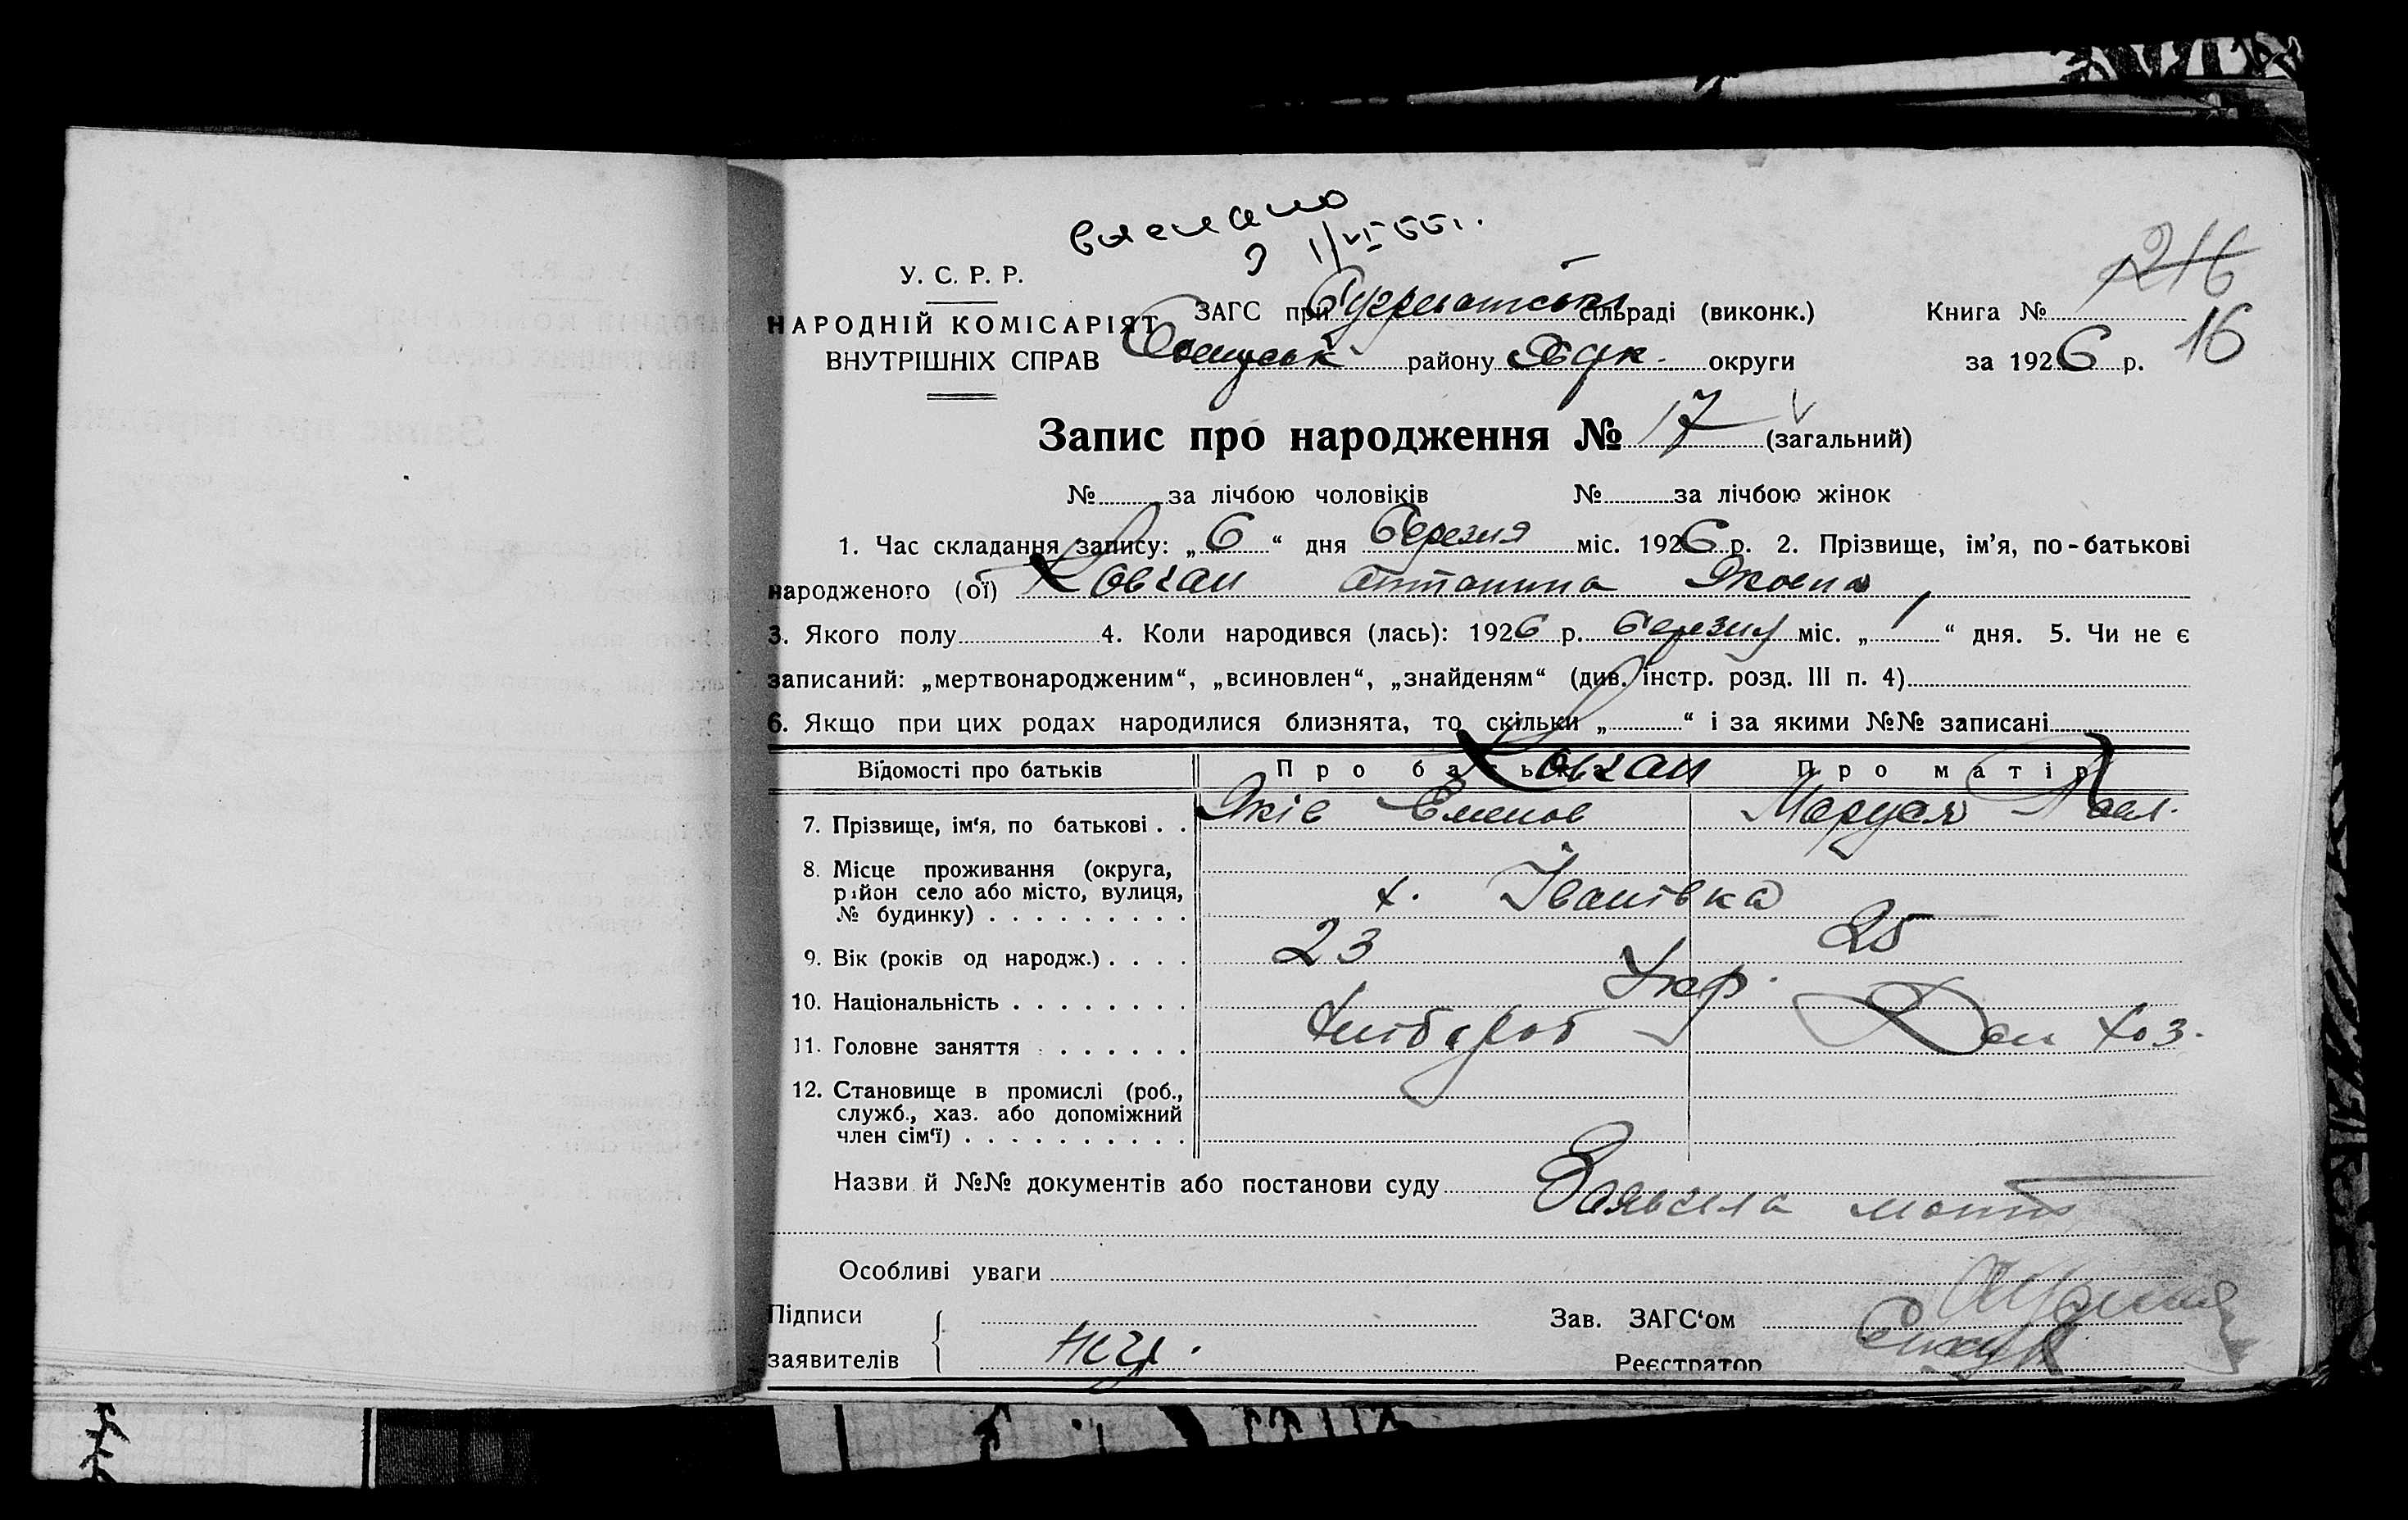 выслано
1/VI 55 г.
У. С. Р. Р.
НАРОДНІЙ КОМІСАРІЯТ
ВНУТРІШНІХ СПРАВ
ЗАГС при сільраді (виконк.)
району округи
Книга № 216
16
за 1926 р.
Запис про народження № 17 (загальний)
№ за лічбою чоловіків № за лічбою жінок
1. Час складання запису: „6“ дня березня міс. 1926 р. 2. Прізвище, ім'я, по-батькові
народженого (ої) Ковган Антонина Яковна
3. Якого полу 4. Коли народився (лась): 1926 р. березня міс. „1“ дня. 5. Чи не є
записаний: „мертвонародженим“, „всиновлен“, „знайденям“ (див. інстр. розд. III п. 4)
6. Якщо при цих родах народилися близнята, то скільки „ “ і за якими №№ записані
Відомості про батьків Про батька Про матір
Ковган
7. Прізвище, ім'я, по батькові . . Яків Маруся
8. Місце проживання (округа,
район село або місто, вулиця,
№ будинку) х. Іванівка
9. Вік (років од народж.) 23 25
10. Національність Укр.
11. Головне заняття Хлібороб Дом хоз.
12. Становище в промислі (роб.,
служб., хаз. або допоміжний
член сім'ї)
Назви й №№ документів або постанови суду Заявила мати
Особливі уваги
Підписи
заявителів
Зав. ЗАГС'ом
Реєстратор